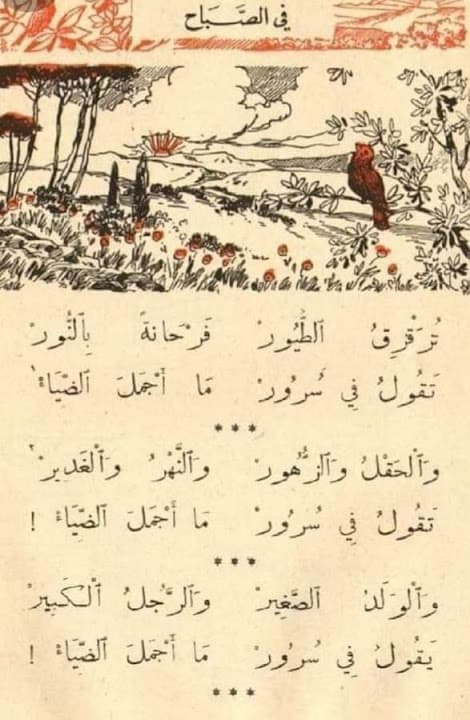 في الصَّبَاح
تُزَقْزِقُ الطُّيُورْ فَرْحَانَةً بِالنُّورْ
تَقُولُ فِي سُرُورْ مَا أَجْمَلَ الضِّيَاءْ
***
وَالْحَقْلُ وَالزُّهُورْ وَالنَّهْرُ وَالْغَدِيرْ
تَقُولُ فِي سُرُورْ مَا أَجْمَلَ الضِّيَاءْ !
***
وَالْوَلَدُ الصَّغِيرْ وَالرَّجُلُ الْكَبِيرْ
يَقُولُ فِي سُرُورْ مَا أَجْمَلَ الضِّيَاءْ !
***